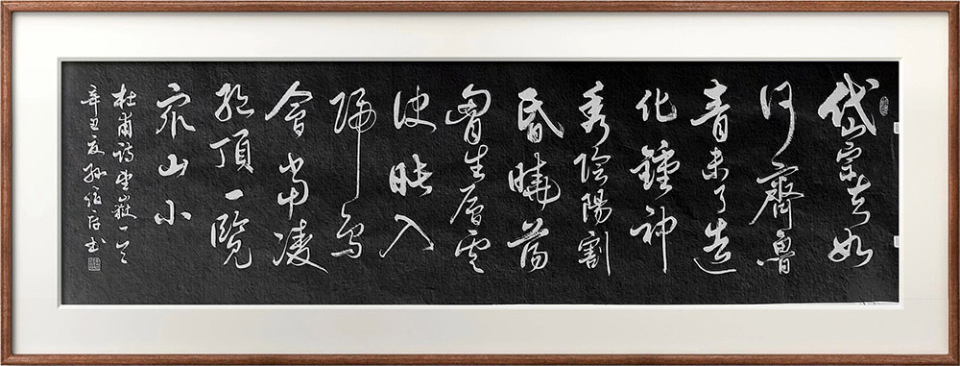 岱宗夫如
何齊魯
青未了造
化鍾神
秀陰陽割
昏曉蕩
胷生層雲
決眥入
歸鳥
會當凌
絕頂一覽
衆山小
杜甫詩望嶽一首
辛丑夏孫書